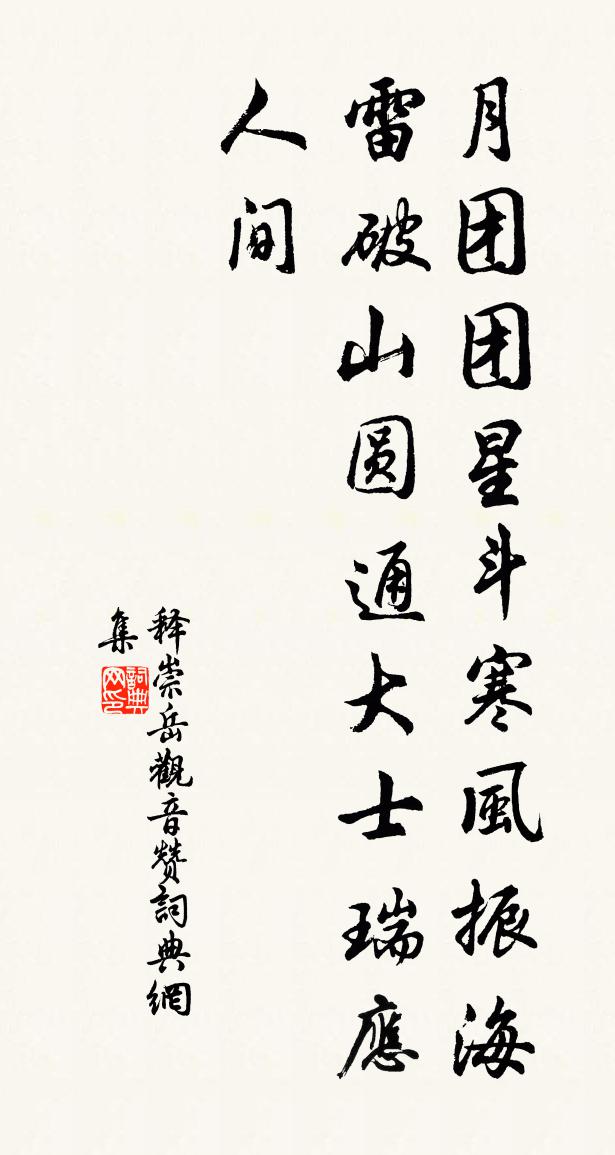 月团团星斗寒風振海
雷破山圆通大士瑞應
人间
释崇岳觀音赞詞典網
集
詞典
网印